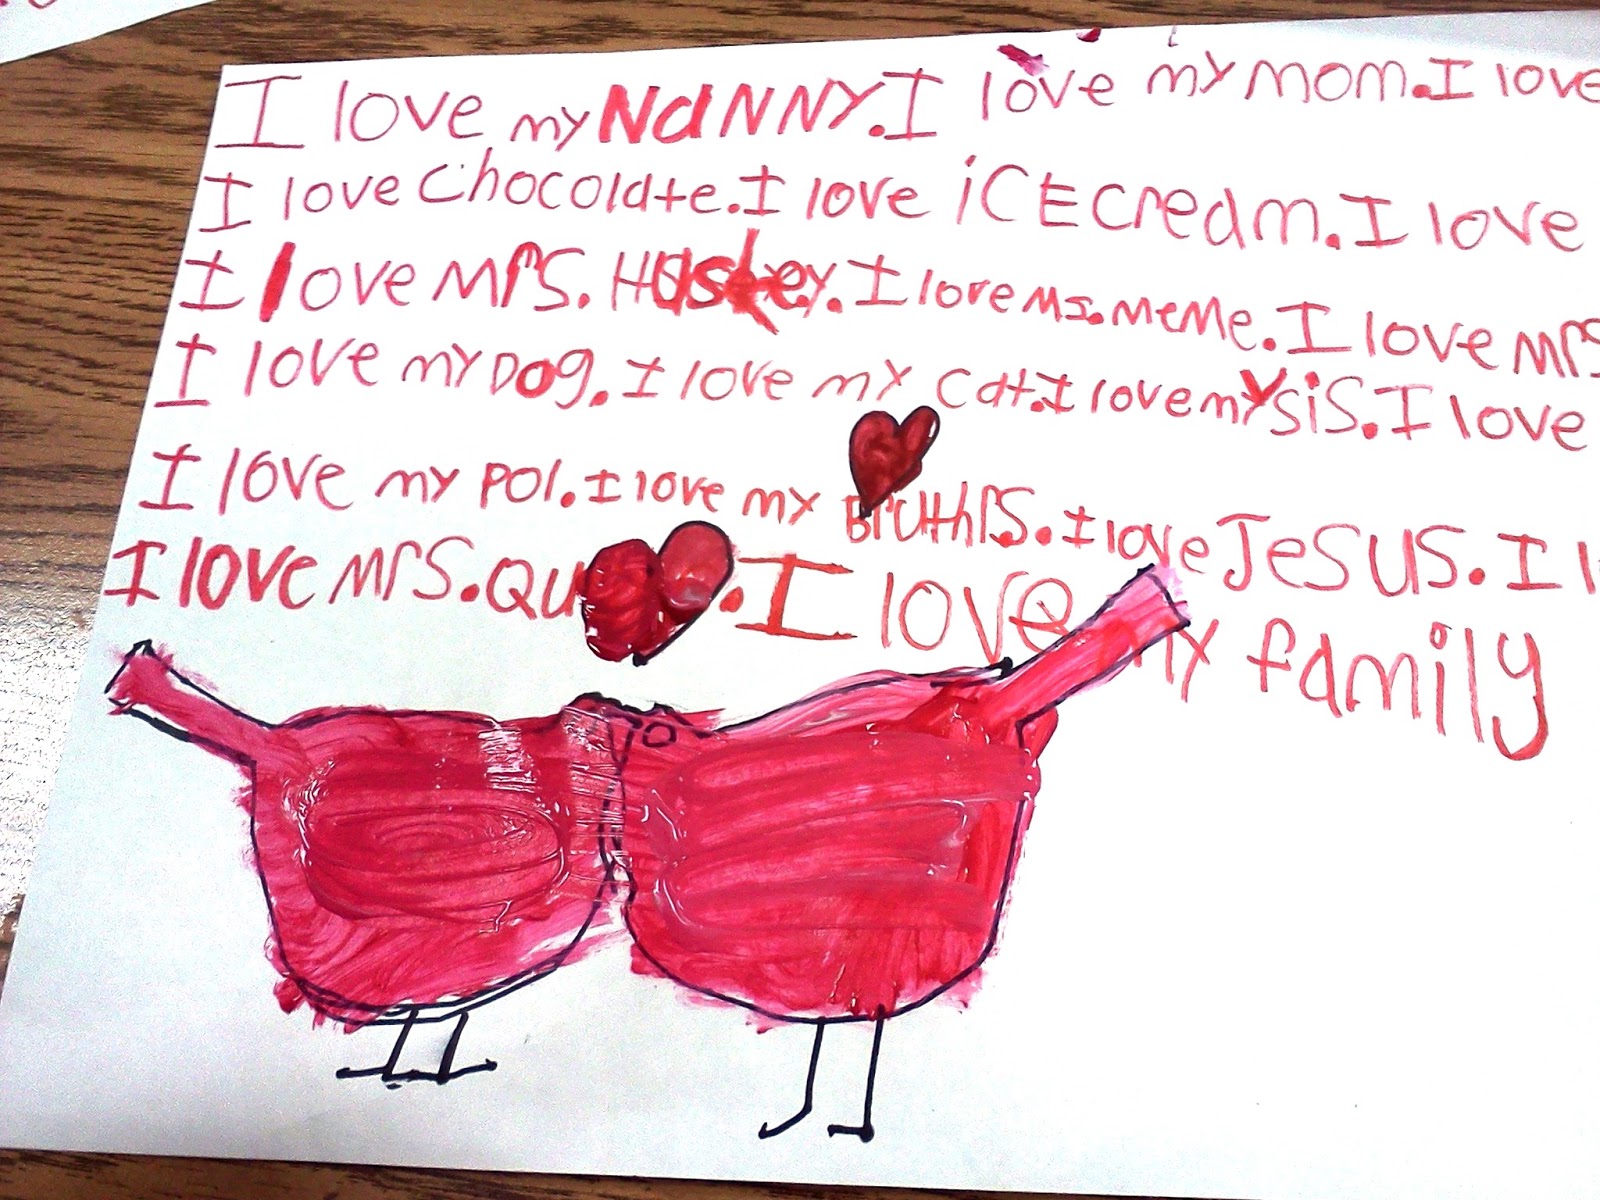 I love my NaNNY. I love my mom. I love
I love chocolate. I love iCE cream. I love
I love mrs. I love Ms. meme. I love mrs
I love my Dog. I love my cat. I love mY sis. I love
I love my pol. I love my Bruthrs. I love JeSUS. I l
I love mrs. Qu . I love my family